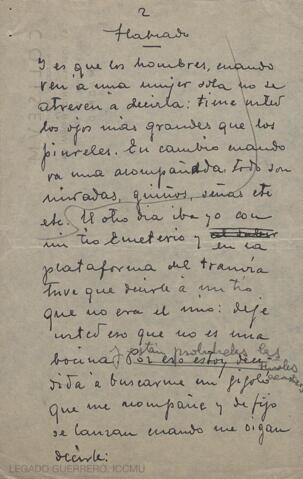 2
Hablado
Y es que los hombres, cuando
ven á una mujer sola no se
atreven a decirla: tiene usted
los ojos más grandes que los
pinreles. En cambio cuando
va una acompañada todo son
miradas, guiños, señas etc
etc. El otro dia iba yo con
mi tio Emeterio y en la
plataforma del tranvia
tuve que decirle a mi tio
que no era el mio: deje
usted eso que no es una
bocina y están prohibidas las
Por eso estoy deci
dida á buscarme un gigolo
que me acompañe y de fijo
se lanzan cuando me oigan
decirle:
LEGADO GUERRERO. ICCMU